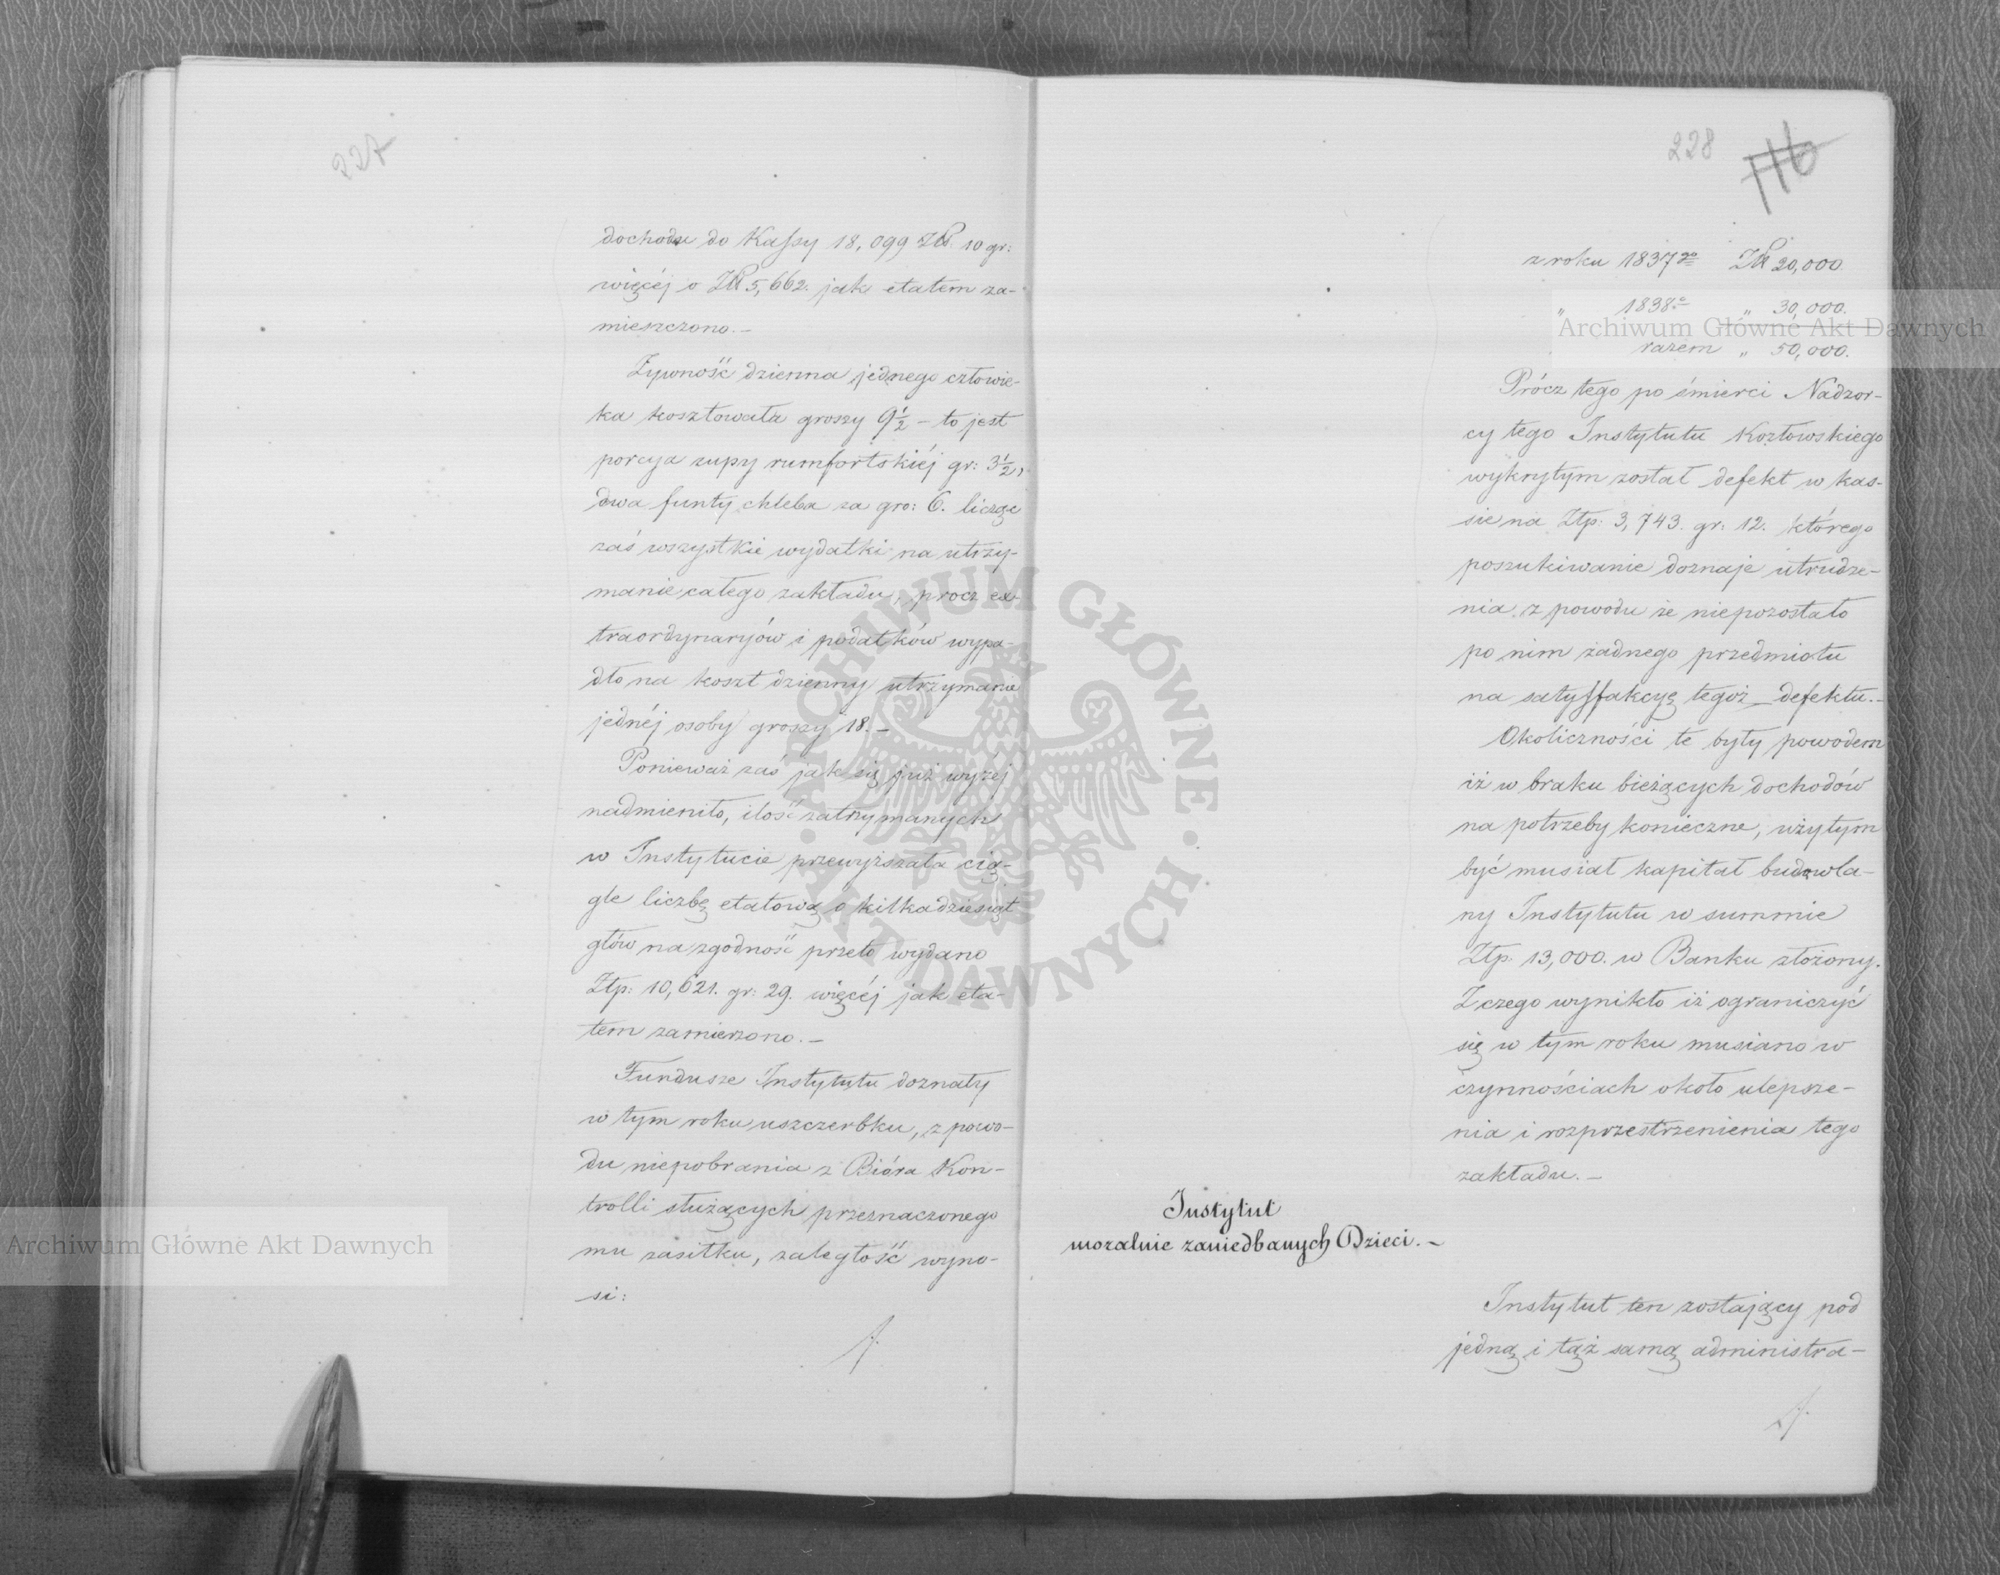 227
dochodu do Kassy 18,099 Złł. 10 gr:
więcéj o Złł 5,662. jak etatem za-
mieszczono. —
Żywność dzienna jednego człowie-
ka kosztowała groszy 9½ — to jest
porcya zupy rumfortskiéj gr: 3½,
dwa funty chleba za gro: 6. licząc
zaś wszystkie wydatki na utrzy-
manie całego zakładu, prócz ex-
traordynaryów i podatków wypa-
dło na koszt dzienny utrzymanie
jednéj osoby groszy 18. —
Ponieważ zaś jak się już wyżéj
nadmieniło, ilość zatrzymanych
w Instytucie przewyższała cią-
gle liczbę etatową o kilkadziesiąt
głów na zgodność przeto wydano
Złp: 10,621. gr: 29. więcéj jak eta-
tem zamierzono. —
Fundusze Instytutu doznały
w tym roku uszczerbku, z powo-
du niepobrania z Bióra Kon-
trolli służących przeznaczonego
mu zasiłku, zaległość wyno-
si:
228
116
z roku 1837go Złł 20,000
" 1838o " 30,000.
razem " 50,000.
Prócz tego po śmierci Nadzor-
cy tego Instytutu Kozłowskiego
wykrytym został defekt w kas-
sie na Złp: 3,743. gr: 12. którego
poszukiwanie doznaje utrudze-
nia z powodu że niepozostało
po nim żadnego przedmiotu
na satysfakcyę tegoż defektu. —
Okoliczności te były powodem
iż w braku bieżących dochodów
na potrzeby konieczne, użytym
być musiał kapitał budowla-
ny Instytutu w summie
Złp. 13,000. w Banku złożony.
Z czego wynikło iż ograniczyć
się w tym roku musiano w
czynnościach około ulepsze-
nia i rozprzestrzenienia tego
zakładu. —
Instytut
moralnie zaniedbanych Dzieci. —
Instytut ten zostający pod
jedną i tąż samą administra-
Archiwum Główne Akt Dawnych
Archiwum Główne Akt Dawnych
ARCHIWUM GŁÓWNE · AKT DAWNYCH ·